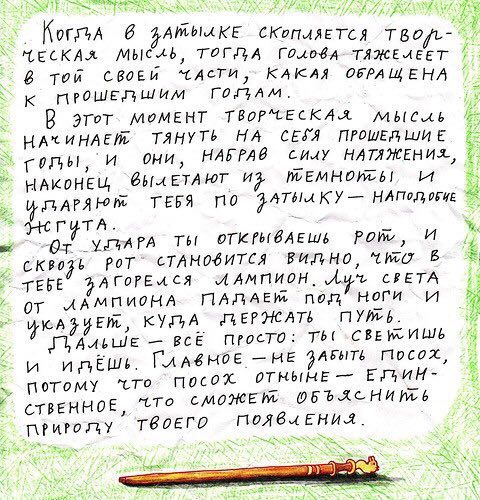 Когда в затылке скопляется твор-
ческая мысль, тогда голова тяжелеет
в той своей части, какая обращена
к прошедшим годам.
В этот момент творческая мысль
начинает тянуть на себя прошедшие
годы, и они, набрав силу натяжения,
наконец вылетают из темноты и
ударяют тебя по затылку — наподобие
жгута.
От удара ты открываешь рот, и
сквозь рот становится видно, что в
тебе загорелся лампион. Луч света
от лампиона падает под ноги и
указует, куда держать путь.
Дальше — всё просто: ты светишь
и идёшь. Главное — не забыть посох,
потому что посох отныне — един-
ственное, что сможет объяснить
природу твоего появления.